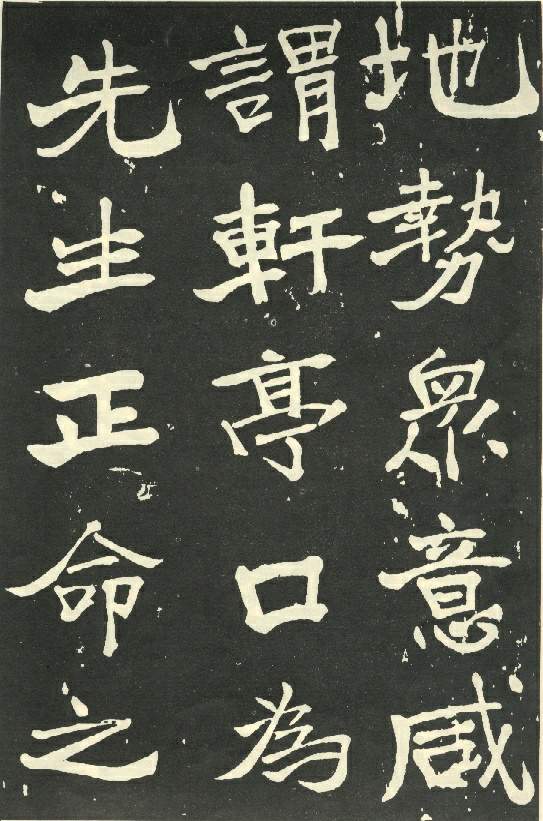 地勢衆意咸
謂軒亭口為
先生正命之